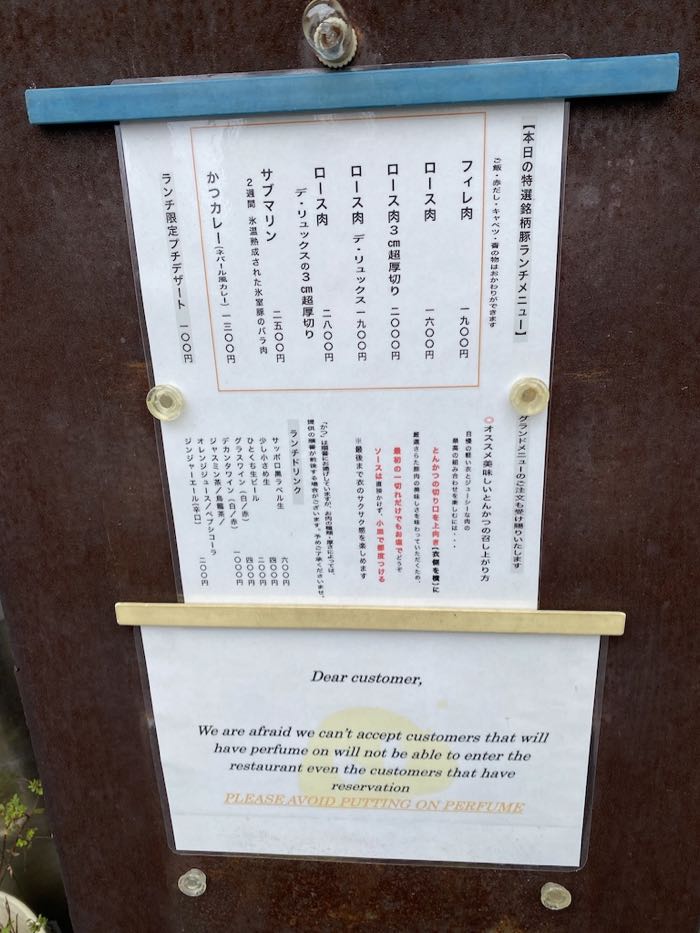 【本日の特選銘柄豚ランチメニュー】
ご飯・赤だし・キャベツ・香の物はおかわりができます
フィレ肉 一九〇〇円
ロース肉 一六〇〇円
ロース肉3㎝超厚切り 二〇〇〇円
ロース肉 デ・リュックス 一九〇〇円
ロース肉
デ・リュックスの3㎝超厚切り 二八〇〇円
サブマリン 二五〇〇円
2週間 氷温熟成された氷室豚のバラ肉
かつカレー(ネパール風カレー) 一三〇〇円
ランチ限定プチデザート 一〇〇円
グランドメニューのご注文も受け賜りいたします
◎オススメ美味しいとんかつの召し上がり方
自慢の軽い衣とジューシーな肉の
最高の組み合わせを楽しむには・・・
とんかつの切り口を上向き(衣側を横)に
厳選さらた豚肉の美味しさを味わっていただくため、
最初の一切れだけでもお塩でどうぞ
ソースは直接かけず、小皿で都度つける
※最後まで衣のサクサク感を楽しめます
「かつ」は順番にお揚げしていますが、お肉の種類・厚さによっては、
提供の順番が前後する場合がございます。予めご了承くださいませ。
ランチドリンク
サッポロ黒ラベル生 六〇〇円
少し小さめ生 四〇〇円
ひとくち生ビール 二〇〇円
グラスワイン(白/赤) 四〇〇円
デカンタワイン(白/赤) 一〇〇〇円
ジャスミン茶/烏龍茶/
オレンジジュース/ペプシコーラ
ジンジャーエール(辛口) 二〇〇円
Dear customer,
We are afraid we can't accept customers that will
have perfume on will not be able to enter the
restaurant even the customers that have
reservation
PLEASE AVOID PUTTING ON PERFUME